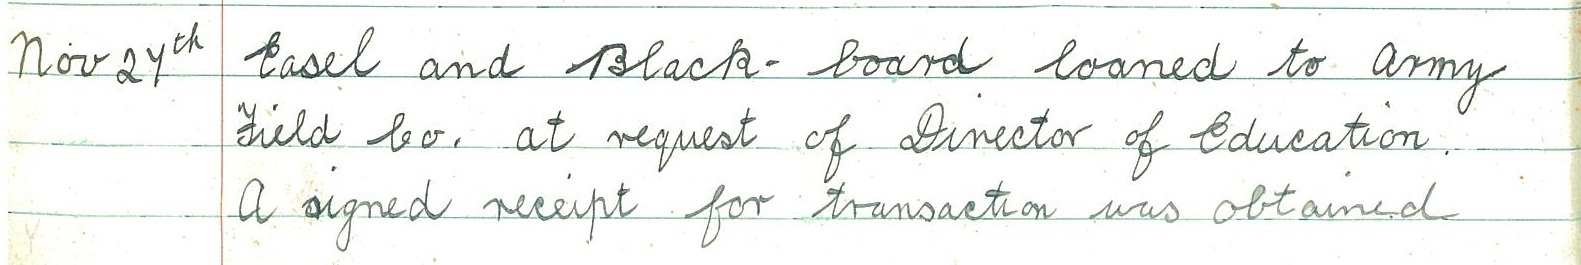 Nov 27th Easel and Black-board loaned to Army
Field Co. at request of Director of Education.
A signed receipt for transaction was obtained